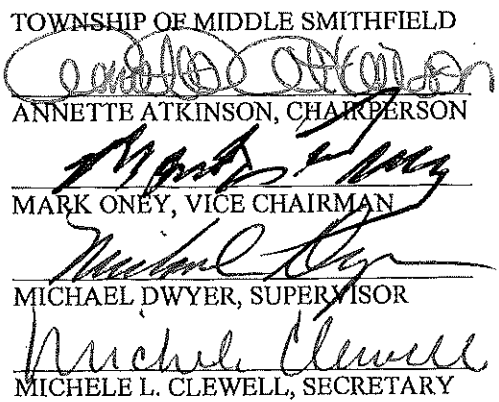 TOWNSHIP OF MIDDLE SMITHFIELD
Annette Atkinson
ANNETTE ATKINSON, CHAIRPERSON
MARK ONEY, VICE CHAIRMAN
Michael Dwyer
MICHAEL DWYER, SUPERVISOR
Michele Clewell
MICHELE L. CLEWELL, SECRETARY